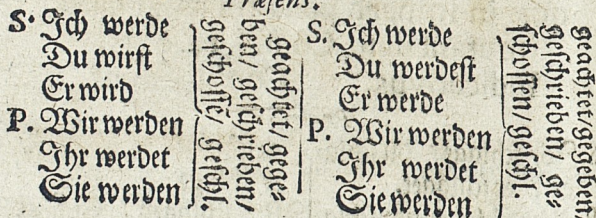 Præsens.
S. Ich werde
Du wirst
Er wird
P. Wir werden
Ihr werdet
Sie werden
geachtet/ gege-
ben/ geschrieben/
geschossē/ geschl.
S. Ich werde
Du werdest
Er werde
P. Wir werden
Ihr werdet
Sie werden
geachtet/ gegeben/
geschrieben/ ge-
schossen/ geschl.